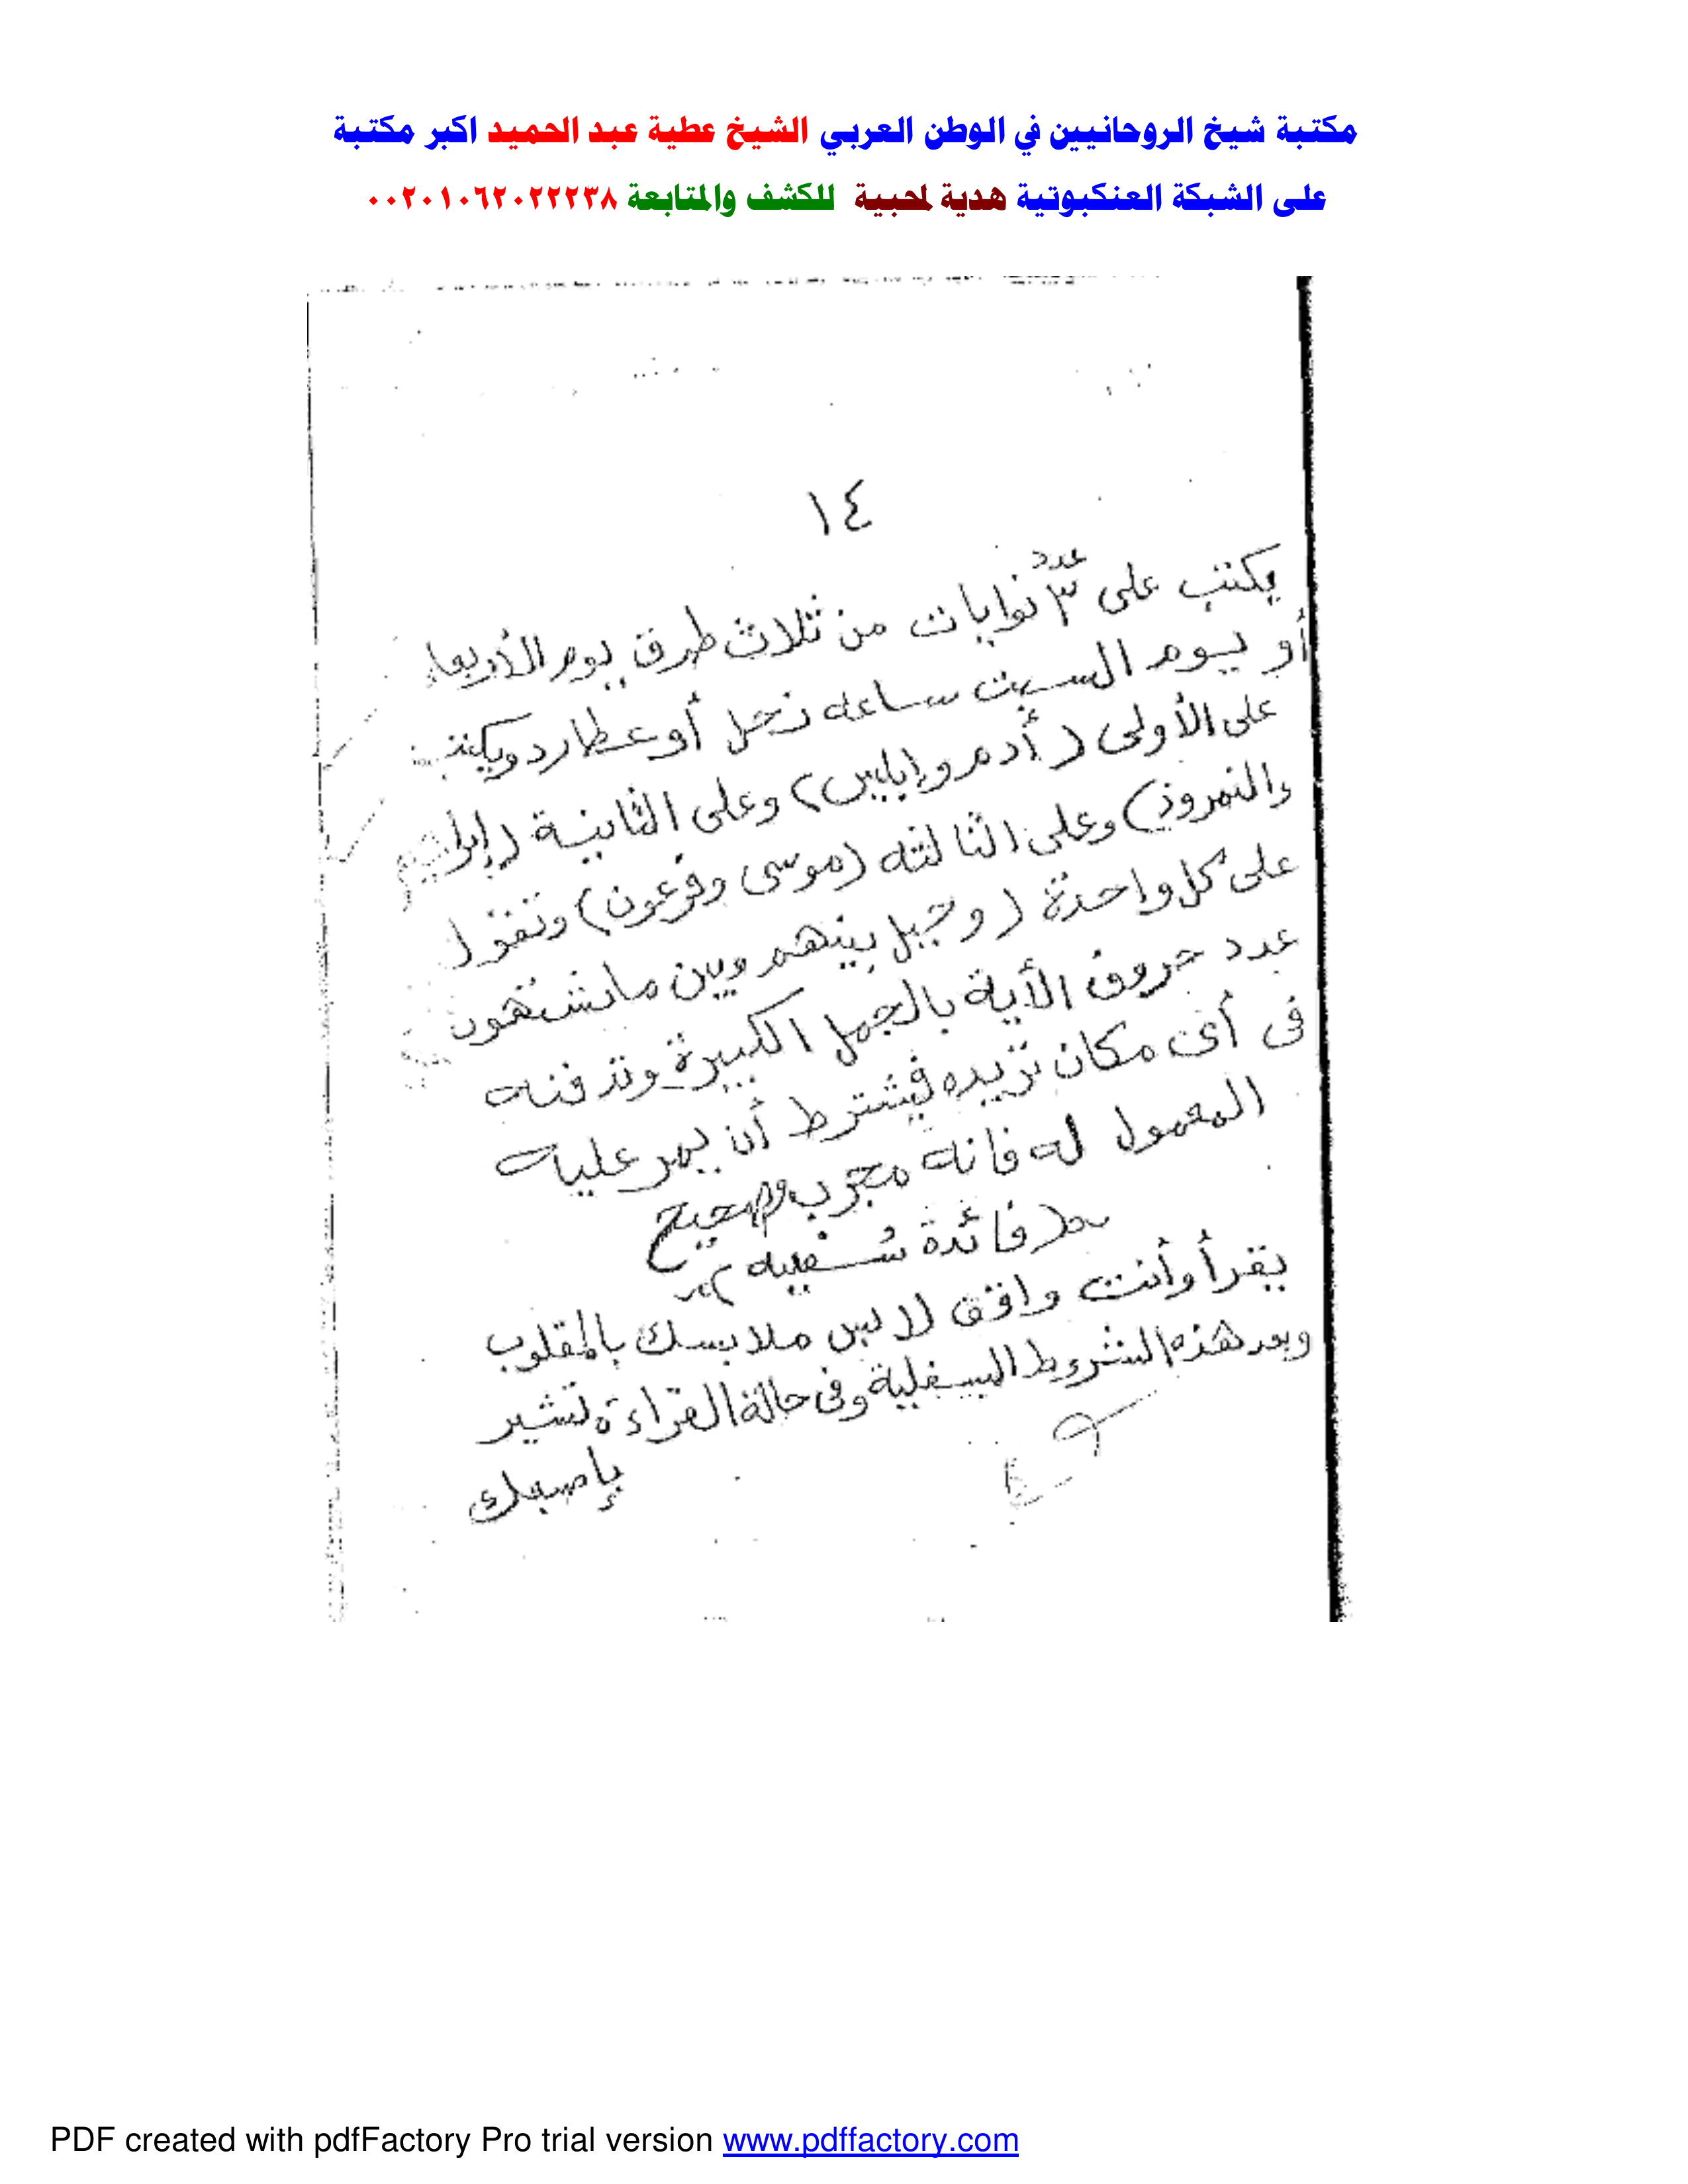 مكتبة شيخ الروحانيين في الوطن العربي الشيخ عطية عبد الحميد اكبر مكتبة
على الشبكة العنكبوتية هدية لمحبية للكشف والمتابعة ٠٠٢٠١٠٦٢٠٢٢٢٣٨
١٤
يكتب على ٣ عدد نوايات من ثلاث طرق يوم الأربعاء
أو يوم السبت ساعه زحل أو عطارد ويكتب
على الأولى (أدم وإبليس) وعلى الثانية (إبراهيم
والنمروذ) وعلى الثالثه (موسى وفرعون) وتقول
على كل واحدة (وحيل بينهم وبين ما يشتهون
عدد حروف الأية بالجمل الكبيرة وتدفنه
فى أى مكان تريده فيشترط أن يمر عليه
المعمول له فانه مجرب وصحيح
(فائدة)
يقرأ وأنت واقف لابس ملابسك بالمقلوب
وبعد هذه الشروط السفلية وفى حالة القراءة تشير
بإصبعك
PDF created with pdfFactory Pro trial version www.pdffactory.com